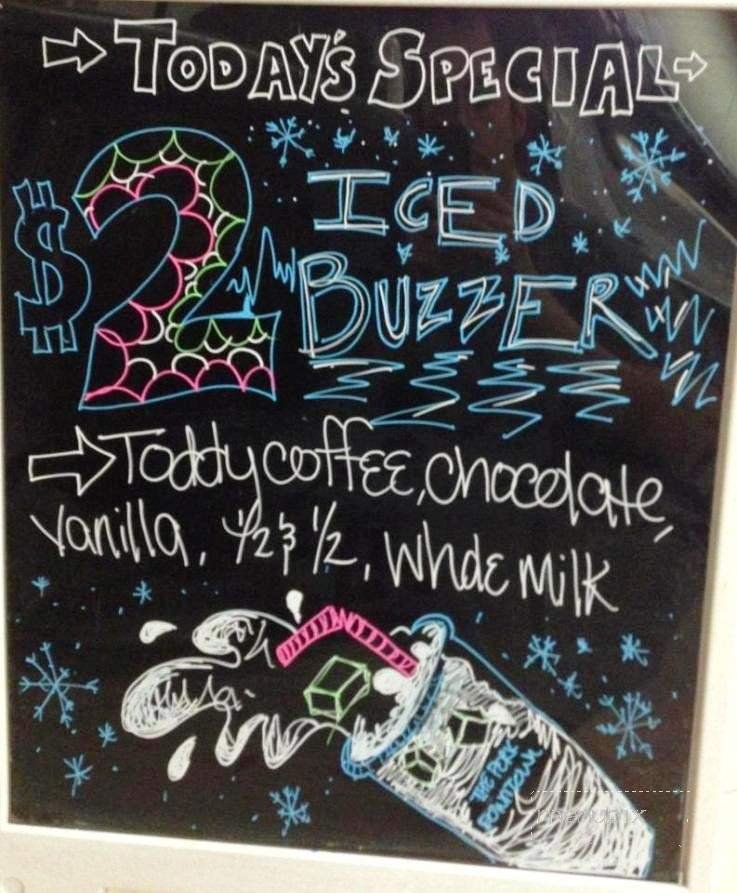 TODAY'S SPECIAL
$2 ICED
BUZZER
Toddy coffee, chocolate,
vanilla, 1/2 & 1/2, whole milk
THE PERK
DOWNTOWN